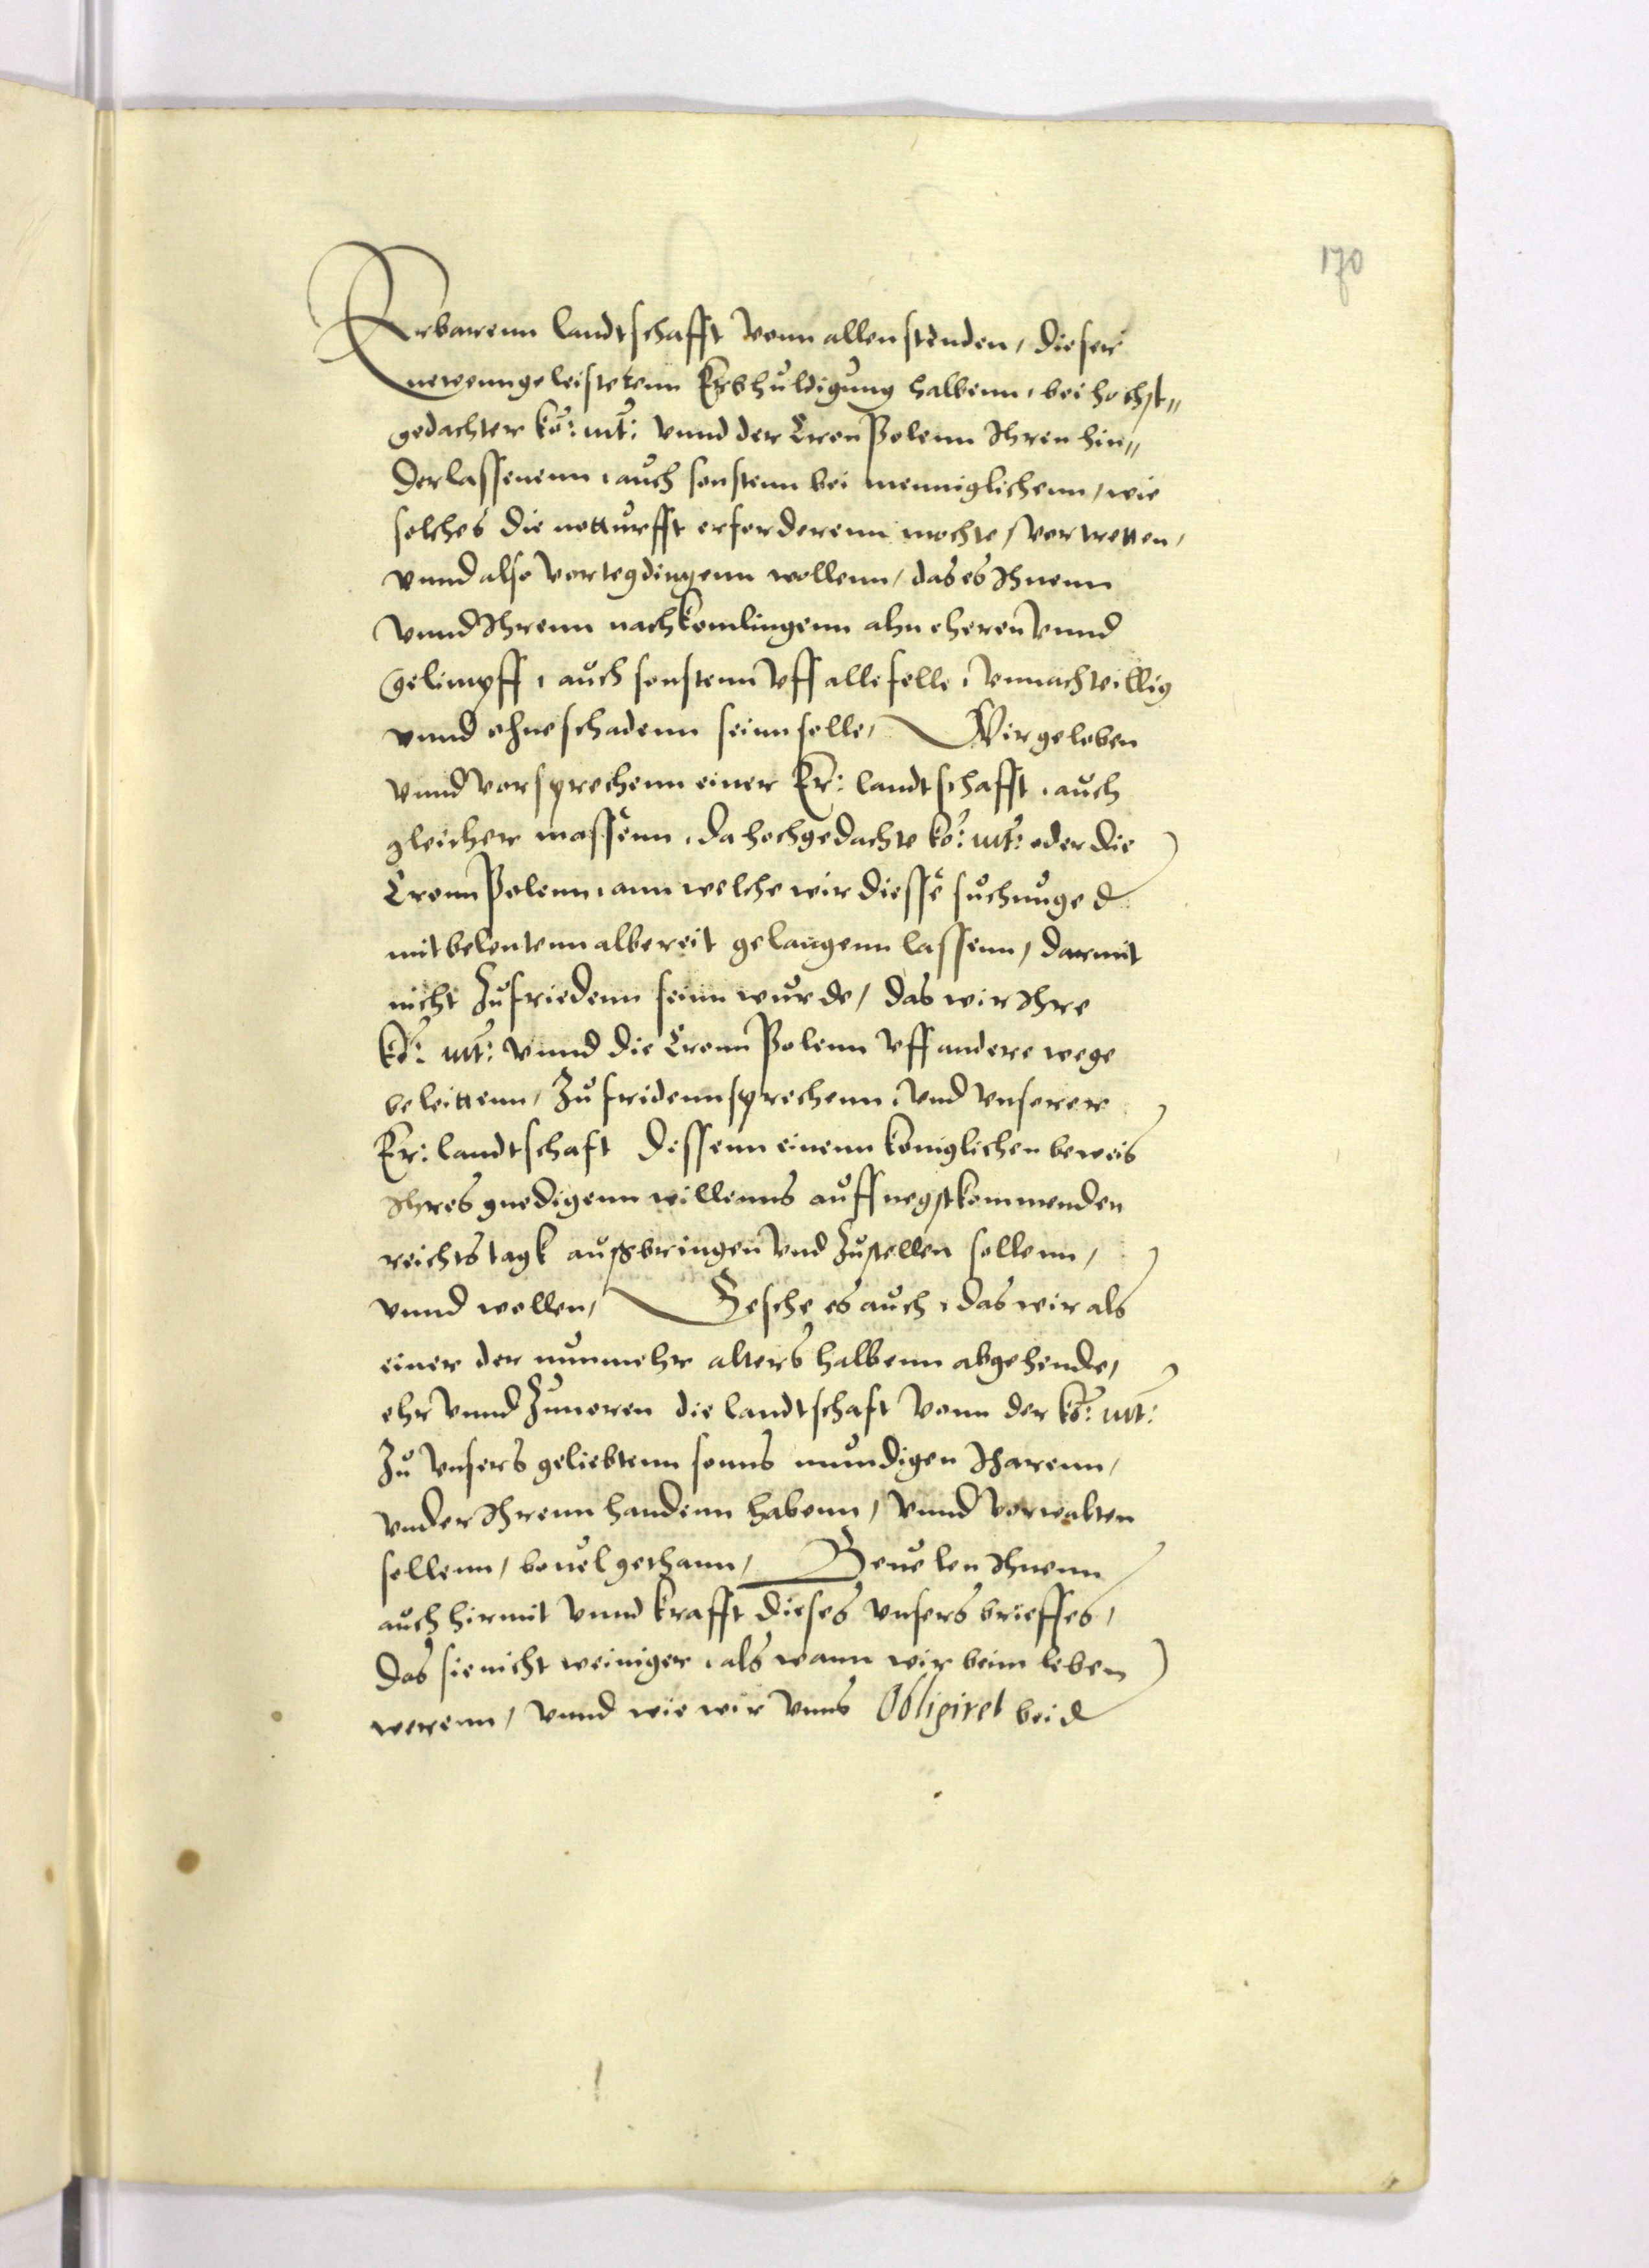 170
Erbarenn landtschafft vonn allen stenden, dieser
newenngeleistetenn Erbhuldigung halbenn, bei hochst„
gedachter Ko: Mt: vnnd der Cron Polenn Ihren hin„
derlassenenn, auch sonstenn bei menniglichenn, wie
solches die notturfft erforderenn mochte, vertretten,
vnnd also vertegdingenn wollenn, das es Ihnenn
vnnd Ihrenn nachkomlingenn ahn eherenn vnnd
gelimpff, auch sonstenn vff alle felle, vnnachteillig
vnnd ohne schadenn seinn solle, Wir geloben
vnnd versprechenn einer Er: landtschafft, auch
gleicher massenn, da hochgedachte Ko: Mt: oder die
Cronn Polenn, ann welche wir diesse suchunge
mitbelentenn albereit gelangenn lassenn, darmit
nicht Zufriedenn seinn wurde, das wir Ihre
Ko: Mt: vnnd die Cronn Polenn vff andere wege
beleittenn, Zufridennsprechenn, vnd vnserer
Er: landtschaft dessenn einenn koniglichen beweis
Ihres gnedigenn willenns auff negstkommenden
reichstagk außbringen vnd Zustellen sollenn,
vnnd wollen, Gesche es auch, das wir als
einer der nunmehr alters halbenn abgehende,
ehr vnnd Zuuoren die landtschaft vonn der Ko: Mt:
Zu vnsers geliebtenn sonns mundigen Iharenn,
vnder Ihrenn handenn habenn, vnnd verwalten
sollenn, beuel gethann, Beuelen Ihnenn
auch hirmit vnnd krafft dieses vnsers brieffes,
das sie nicht weiniger, als wann wir beim leben
werenn, vnnd wie wir vnns Obligiret bei